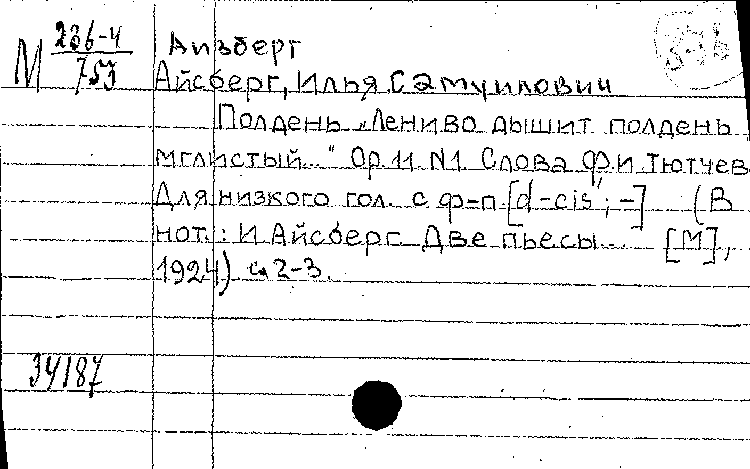 М 236-4
753
Айзберг
Айсберг, Илья Самуилович
Полдень „Лениво дышит полдень
мглистый..." Op.11 N1 Слова Ф.И Тютчев
Для низкого гол. с ф-п. [d-cis'; -] (В
нот.: И Айсберг Две пьесы... [М],
1924) с. 2-3.
34187